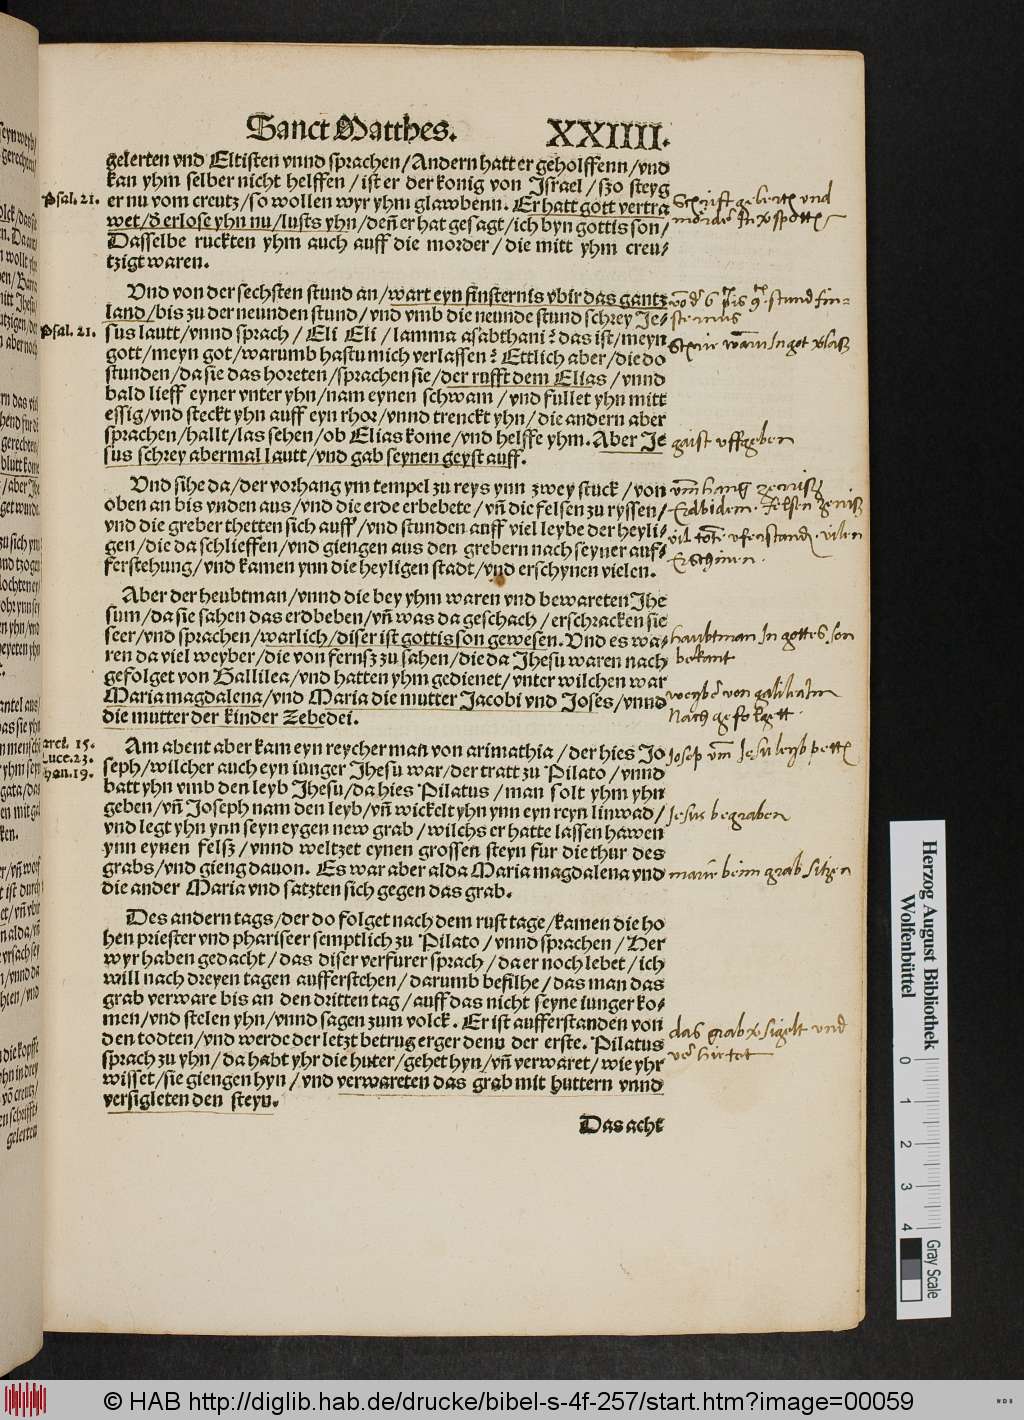 Sanct Matthes. XXIIII.
gelerten vnd Eltisten vnnd sprachen/Andern hatt er geholffenn/vnd
kan yhm selber nicht helffen/ist er der konig von Israel/szo steyg
Psal. 21. er nu vom creutz/so wollen wyr yhm glawbenn. Er hatt gott vertra
wet/d erlose yhn nu/lusts yhn/deñ er hat gesagt/ich byn gottis son/
Dasselbe ruckten yhm auch auff die morder/die mitt yhm creu-
tzigt waren.
Vnd von der sechsten stund an/wart eyn finsternis vbir das gantz
land/bis zu der neunden stund/vnd vmb die neunde stund schrey Je-
Psal. 21. sus lautt/vnnd sprach/Eli Eli/lamma asabthani? das ist/meyn
gott/meyn got/warumb hastu mich verlassen? Ettlich aber/die do
stunden/da sie das horeten/sprachen sie/der rufft dem Elias/vnnd
bald lieff eyner vnter yhn/nam eynen schwam/vnd fullet yhn mitt
essig/vnd steckt yhn auff eyn rhor/vnnd trenckt yhn/die andern aber
sprachen/hallt/las sehen/ob Elias kome/vnd helffe yhm. Aber Je
sus schrey abermal lautt/vnd gab seynen geyst auff.
gaist vffgeben
Vnd sihe da/der vorhang ym tempel zu reys ynn zwey stuck/von
oben an bis vnden aus/vnd die erde erbebete/vñ die felsen zu ryssen/
vnd die greber thetten sich auff/vnd stunden auff viel leybe der heyli-
gen/die da schlieffen/vnd giengen aus den grebern nach seyner auf-
ferstehung/vnd kamen ynn die heyligen stadt/vnd erschynen vielen.
Erschinen.
Aber der heubtman/vnnd die bey yhm waren vnd bewareten Jhe
sum/da sie sahen das erdbeben/vñ was da geschach/erschracken sie
seer/vnd sprachen/warlich/diser ist gottis son gewesen. Vnd es wa-
haubtman In gottes son
ren da viel weyber/die von fernsz zu sahen/die da Jhesu waren nach
bekant
gefolget von Gallilea/vnd hatten yhm gedienet/vnter wilchen war
Maria magdalena/vnd Maria die mutter Jacobi vnd Joses/vnnd
die mutter der kinder Zebedei.
Nach gefolgett
Marci. 15. Am abent aber kam eyn reycher man von arimathia/der hies Jo
Luce. 23. seph/wilcher auch eyn iunger Jhesu war/der tratt zu Pilato/vnnd
Johan. 19. batt yhn vmb den leyb Jhesu/da hies Pilatus/man solt yhm yhn
geben/vñ Joseph nam den leyb/vñ wickelt yhn ynn eyn reyn linwad/
Jesus begraben
vnd legt yhn ynn seyn eygen new grab/wilchs er hatte lassen hawen
ynn eynen felsz/vnnd weltzet eynen grossen steyn fur die thur des
grabs/vnd gieng dauon. Es war aber alda Maria magdalena vnd
marie beim grab sitzen
die ander Maria vnd satzten sich gegen das grab.
Des andern tags/der do folget nach dem rust tage/kamen die ho
hen priester vnd phariseer semptlich zu Pilato/vnnd sprachen/Her
wyr haben gedacht/das diser verfurer sprach/da er noch lebet/ich
will nach dreyen tagen aufferstehen/darumb befilhe/das man das
grab verware bis an den dritten tag/auff das nicht seyne iunger ko-
men/vnd stelen yhn/vnnd sagen zum volck. Er ist aufferstanden von
den todten/vnd werde der letzt betrug erger denn der erste. Pilatus
sprach zu yhn/da habt yhr die huter/gehet hyn/vñ verwaret/wie yhr
wisset/sie giengen hyn/vnd verwareten das grab mit huttern vnnd
versigleten den steyn.
Das acht
Herzog August Bibliothek
Wolfenbüttel
0 1 2 3 4
Gray Scale
© HAB http://diglib.hab.de/drucke/bibel-s-4f-257/start.htm?image=00059